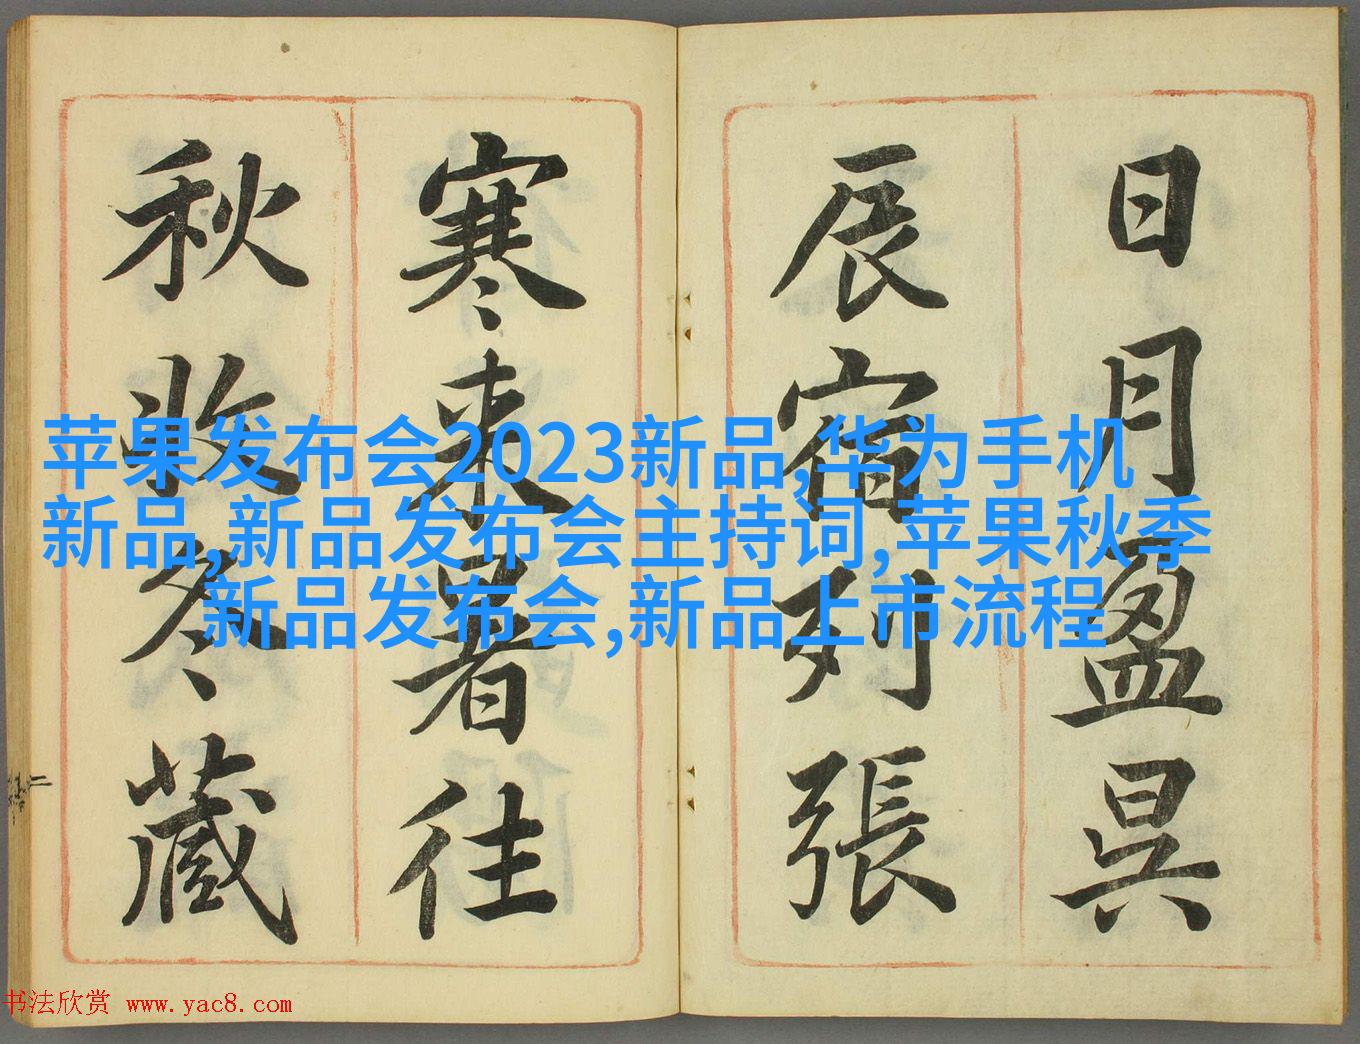 日月盈昃
辰宿列張
寒来暑往
秋收冬藏
苹果发布会2023新品,华为手机
新品,新品发布会主持词,苹果秋季
新品发布会,新品上市流程
书法欣赏 www.yac8.com